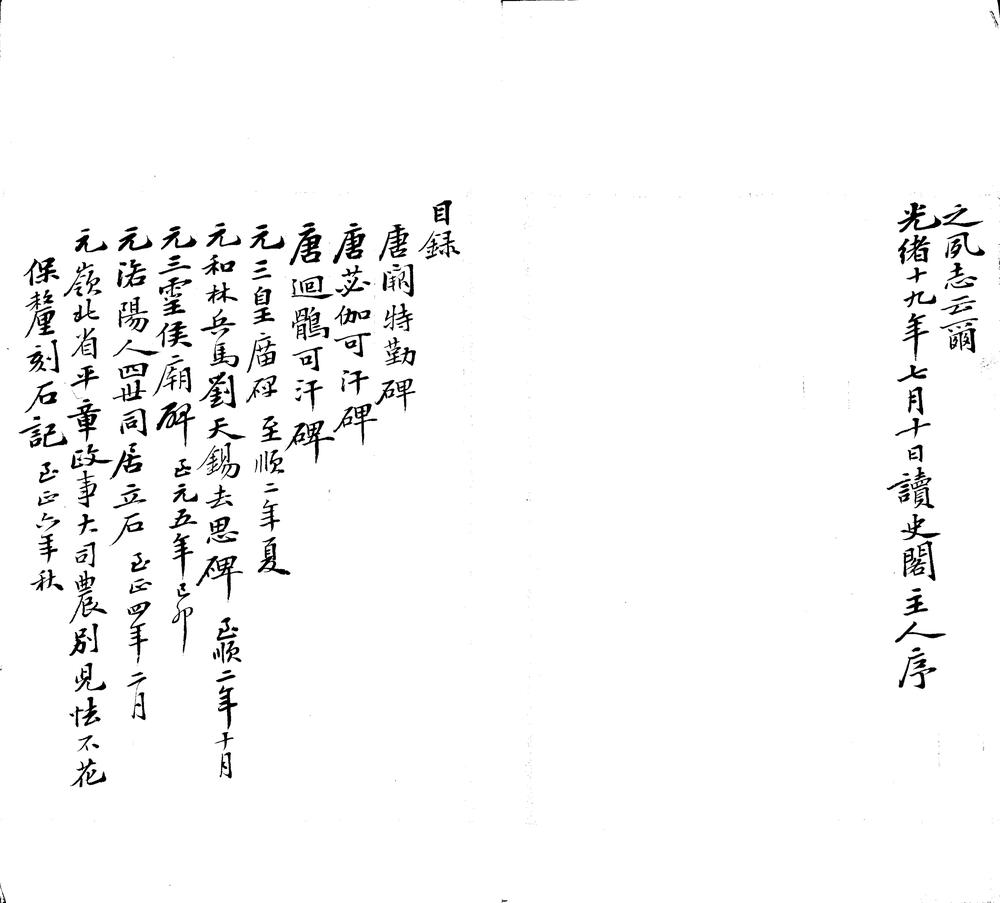 之夙志云爾
光緒十九年七月十日讀史閣主人序
目錄
唐闕特勤碑
唐苾伽可汗碑
唐迴鶻可汗碑
元三皇廟碑 至順二年夏
元和林兵馬劉天錫去思碑 至順二年十月
元三靈侯廟碑 至元五年己卯
元洛陽人四世同居立石 至正四年二月
元嶺北省平章政事大司農別兒怯不花
保釐刻石記 至正六年秋